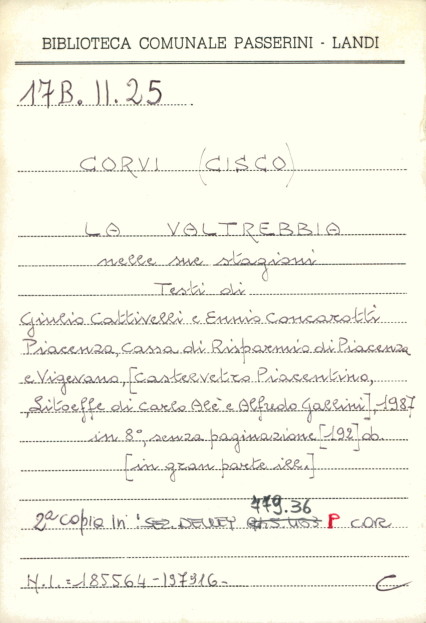 BIBLIOTECA COMUNALE PASSERINI - LANDI
17B. II. 25
CORVI (CISCO)
LA VALTREBBIA
nelle sue stagioni
Testi di
Giulio Cattivelli e Ennio Concarotti
Piacenza, Cassa di Risparmio di Piacenza
e Vigevano, [Castelvetro Piacentino,
Litoeffe di Carlo Alè e Alfredo Gallini], 1987
in 8°, senza paginazione [192]
[in gran parte ill.]
779.36
2ª copia In SEZ. DEWEY P COR
N.I. = 185564 - 197916 -
C